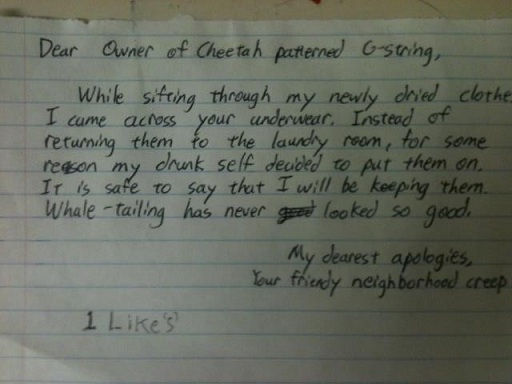 Dear Owner of Cheetah patterned G-string,
While sifting through my newly dried clothe
I came across your underwear. Instead of
returning them to the laundry room, for some
reason my drunk self decided to put them on.
It is safe to say that I will be keeping them.
Whale-tailing has never looked so good.
My dearest apologies,
Your friendy neighborhood creep
1 Like's'